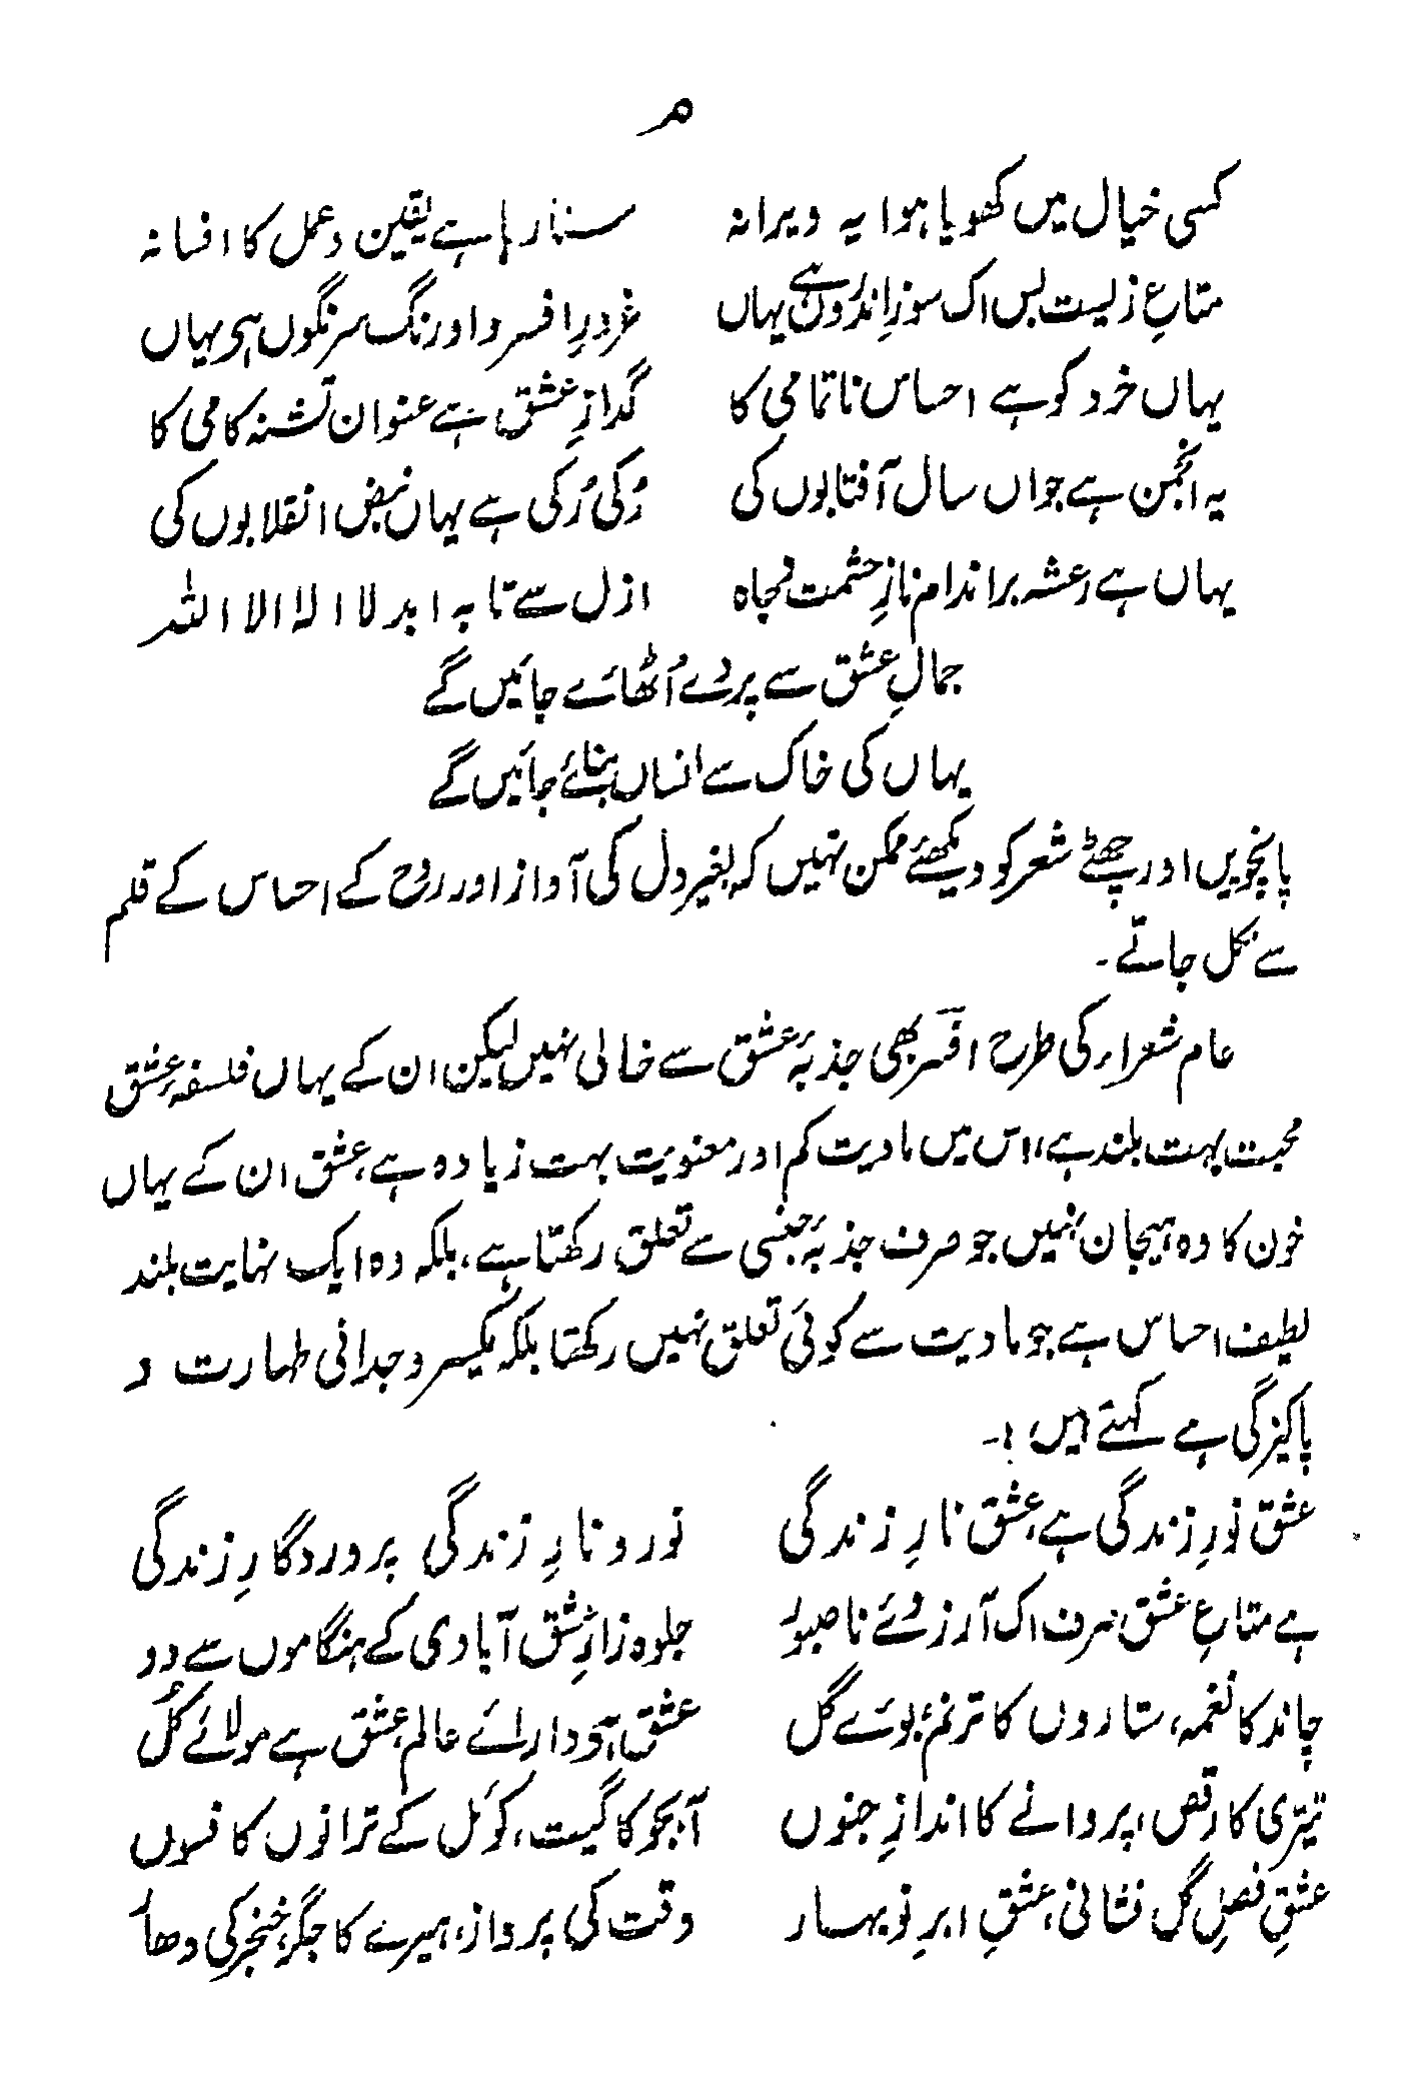 م
کسی خیال میں کھویا ہوا یہ ویرانہ سنا رہا ہے یقین و عمل کا افسانہ
متاعِ زیست بس اک سوزِ اندرون ہے یہاں غرورِ افسر و اورنگ سرنگوں ہی یہاں
یہاں خرد کو ہے احساس ناتمامی کا گدازِ عشق ہے عنوان تشنہ کامی کا
یہ انجمن ہے جواں سال آفتابوں کی رُکی رُکی ہے یہاں نبض انقلابوں کی
یہاں ہے رعشہ براندام نازِ حشمت و جاہ ازل سے تا بہ ابد لا الہ الا اللہ
جمالِ عشق سے پردے اُٹھائے جائیں گے
یہاں کی خاک سے انساں بنائے جائیں گے
پانچویں اور چھٹے شعر کو دیکھئے ممکن نہیں کہ بغیر دل کی آواز اور روح کے احساس کے قلم
سے نکل جاتے۔
عام شعراء کی طرح افسر بھی جذبۂ عشق سے خالی نہیں لیکن ان کے یہاں فلسفۂ عشق
محبت بہت بلند ہے، اس میں مادیت کم اور معنویت بہت زیادہ ہے، عشق ان کے یہاں
خون کا وہ ہیجان نہیں جو صرف جذبۂ جنسی سے تعلق رکھتا ہے، بلکہ وہ ایک نہایت بلند
لطیف احساس ہے جو مادیت سے کوئی تعلق نہیں رکھتا بلکہ یکسر وجدانی طہارت و
پاکیزگی ہے کہتے ہیں :۔
عشق نورِ زندگی ہے، عشق نارِ زندگی نور و نارِ زندگی پروردگارِ زندگی
ہے متاعِ عشق صرف اک آرزوئے ناصبور جلوہ زارِ عشق آبادی کے ہنگاموں سے دور
چاند کا نغمہ، ستاروں کا ترنم، بوئے گل عشق دارائے عالم، عشق ہے مولائے کُل
تیتری کا رقص، پروانے کا اندازِ جنوں آبجو کا گیت، کوئل کے ترانوں کا فسوں
عشقِ فصلِ گل نشانی، عشقِ ابرِ نو بہار وقت کی پرواز، ہیرے کا جگر، خنجر کی دھار